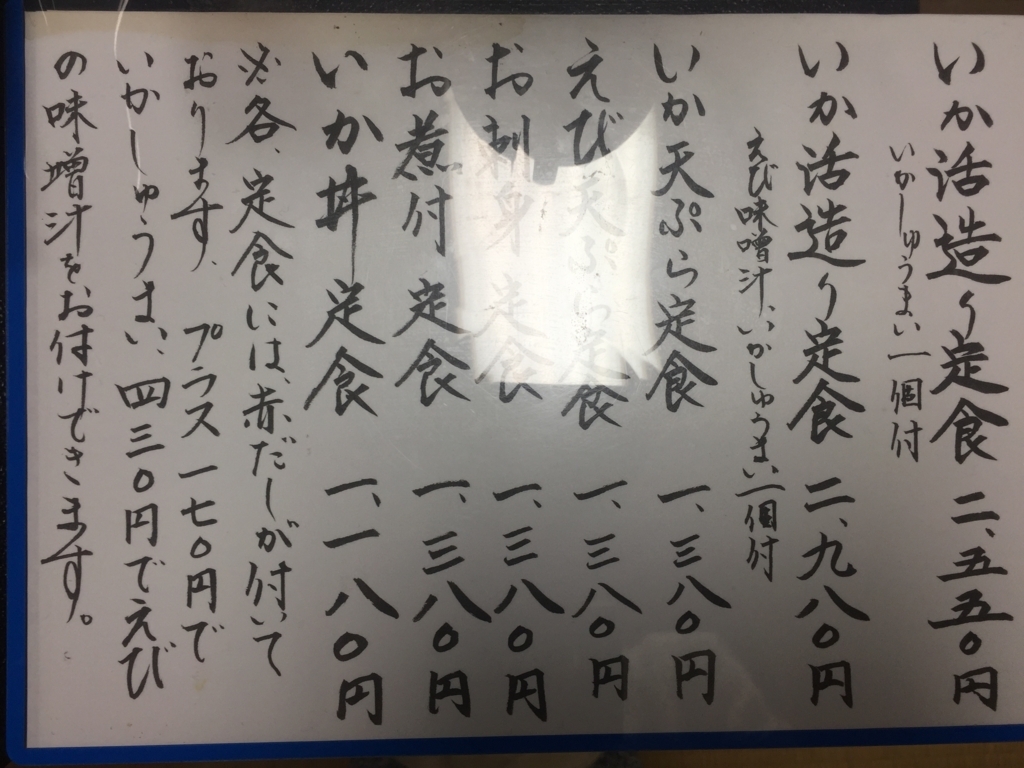 いか活造り定食 二、五五〇円
いかしゅうまい一個付
いか活造り定食 二、九八〇円
えび味噌汁、いかしゅうまい一個付
いか天ぷら定食 一、三八〇円
えび天ぷら定食 一、三八〇円
お刺身定食 一、三八〇円
お煮付定食 一、三八〇円
いか丼定食 一、一八〇円
※各、定食には、赤だしが付いて
おります、 プラス一七〇円で
いかしゅうまい、四三〇円でえび
の味噌汁をお付けできます。